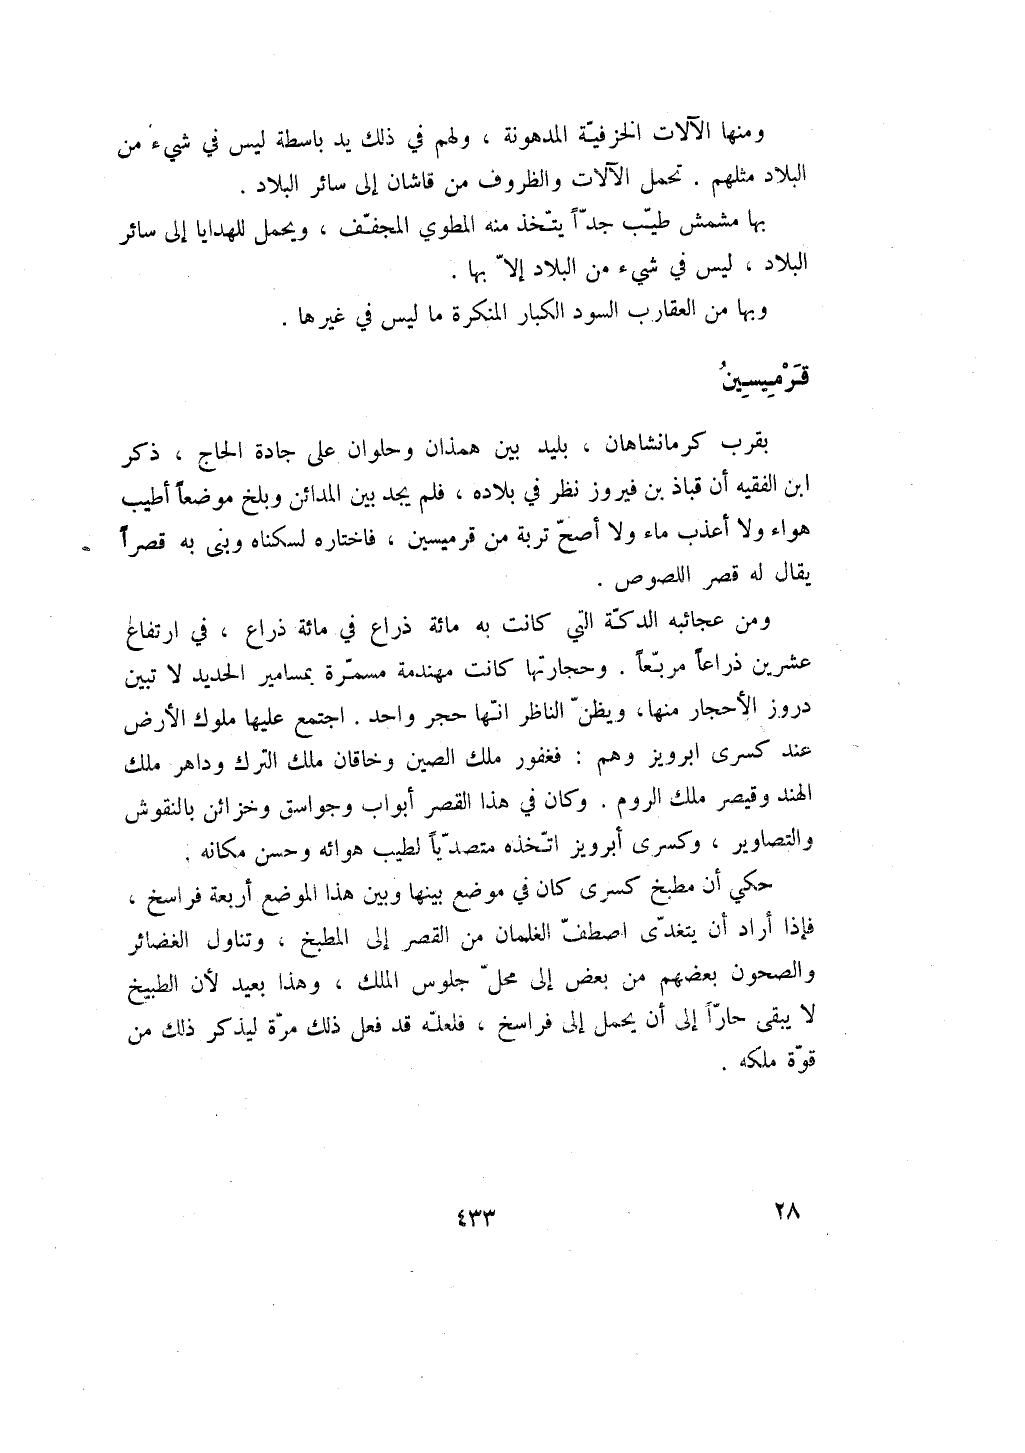 ومنها الآلات الخزفيّة المدهونة ، ولهم في ذلك يد باسطة ليس في شيء من
البلاد مثلهم . تحمل الآلات والظروف من قاشان إلى سائر البلاد .
بها مشمش طيّب جدّاً يتّخذ منه المطوي المجفّف ، ويحمل للهدايا إلى سائر
البلاد ، ليس في شيء من البلاد إلاّ بها .
وبها من العقارب السود الكبار المنكرة ما ليس في غيرها .
قَرْمِيسِينُ
بقرب كرمانشاهان ، بليد بين همذان وحلوان على جادة الحاج ، ذكر
ابن الفقيه أن قباذ بن فيروز نظر في بلاده ، فلم يجد بين المدائن وبلخ موضعاً أطيب
هواء ولا أعذب ماء ولا أصحّ تربة من قرميسين ، فاختاره لسكناه وبنى به قصراً
يقال له قصر اللصوص .
ومن عجائبه الدكّة التي كانت به مائة ذراع في مائة ذراع ، في ارتفاع
عشرين ذراعاً مربّعاً . وحجارتها كانت مهندمة مسمّرة بمسامير الحديد لا تبين
دروز الأحجار منها، ويظنّ الناظر انّها حجر واحد . اجتمع عليها ملوك الأرض
عند كسرى ابرويز وهم : فغفور ملك الصين وخاقان ملك الترك وداهر ملك
الهند وقيصر ملك الروم . وكان في هذا القصر أبواب وجواسق وخزائن بالنقوش
والتصاوير ، وكسرى أبرويز اتّخذه متصدّياً لطيب هوائه وحسن مكانه .
حكي أن مطبخ كسرى كان في موضع بينها وبين هذا الموضع أربعة فراسخ ،
فإذا أراد أن يتغدّى اصطفّ الغلمان من القصر إلى المطبخ ، وتناول الغضائر
والصحون بعضهم من بعض إلى محلّ جلوس الملك ، وهذا بعيد لأن الطبيخ
لا يبقى حارّاً إلى أن يحمل إلى فراسخ ، فلعلّه قد فعل ذلك مرّة ليذكر ذلك من
قوّة ملكه .
٢٨
٤٣٣